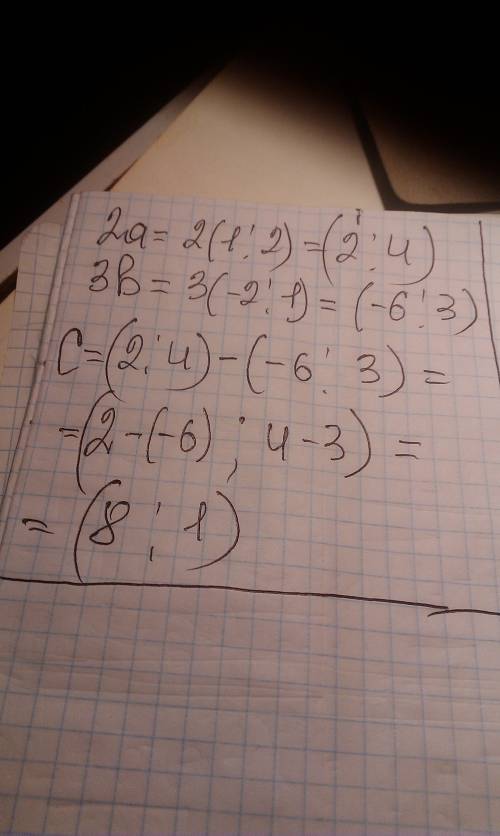 2a = 2(1; 2) = (2; 4)
3b = 3(-2; 1) = (-6; 3)
C = (2; 4) - (-6; 3) =
= (2 - (-6); 4 - 3) =
= (8; 1)